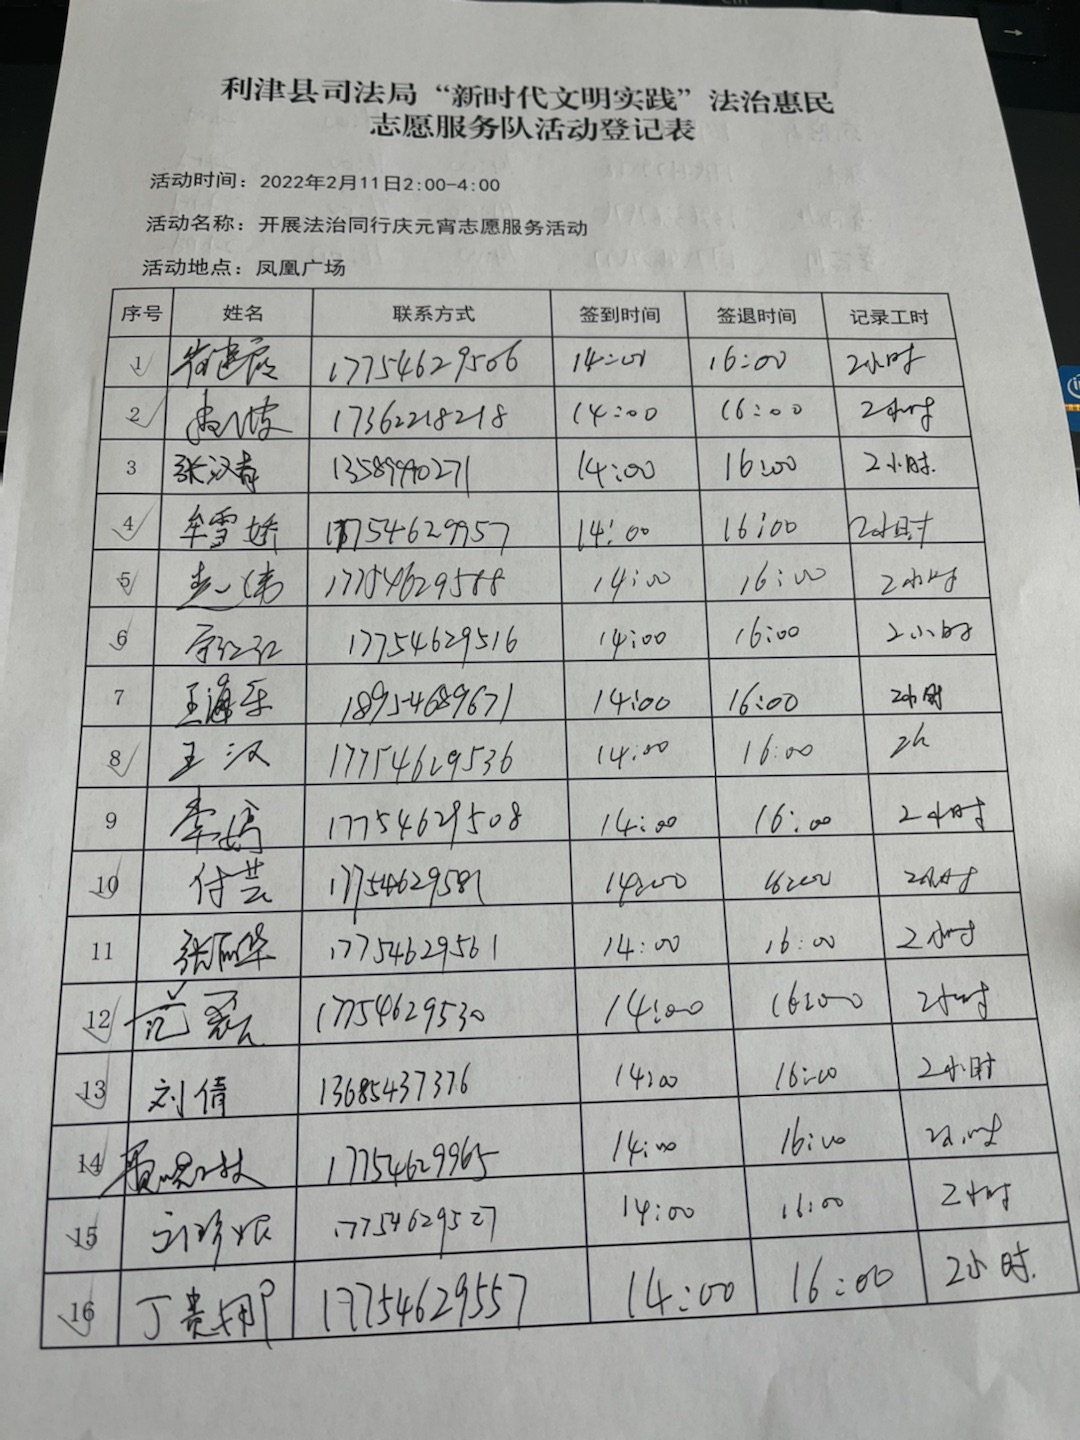 利津县司法局“新时代文明实践”法治惠民
志愿服务队活动登记表
活动时间：2022年2月11日2:00-4:00
活动名称：开展法治同行庆元宵志愿服务活动
活动地点：凤凰广场
序号 姓名 联系方式 签到时间 签退时间 记录工时
1 17754629506 14:00 16:00 2小时
2 17362218218 14:00 16:00 2小时
3 张汉春 13589990271 14:00 16:00 2小时.
4 牟雪娇 17754629957 14:00 16:00 2小时
5 17754629588 14:00 16:00 2小时
6 17754629516 14:00 16:00 2小时
7 王海乐 18954689671 14:00 16:00 2小时
8 王汉 17754629536 14:00 16:00 2h
9 李娟 17754629508 14:00 16:00 2小时
10 付芸 17754629581 14:00 16:00 2小时
11 张丽华 17754629561 14:00 16:00 2小时
12 范 17754629530 14:00 16:00 2小时
13 刘倩 13685437376 14:00 16:00 2小时
14 17754629965 14:00 16:00 2小时
15 17754629527 14:00 16:00 2小时
16 丁贵翔 17754629557 14:00 16:00 2小时.